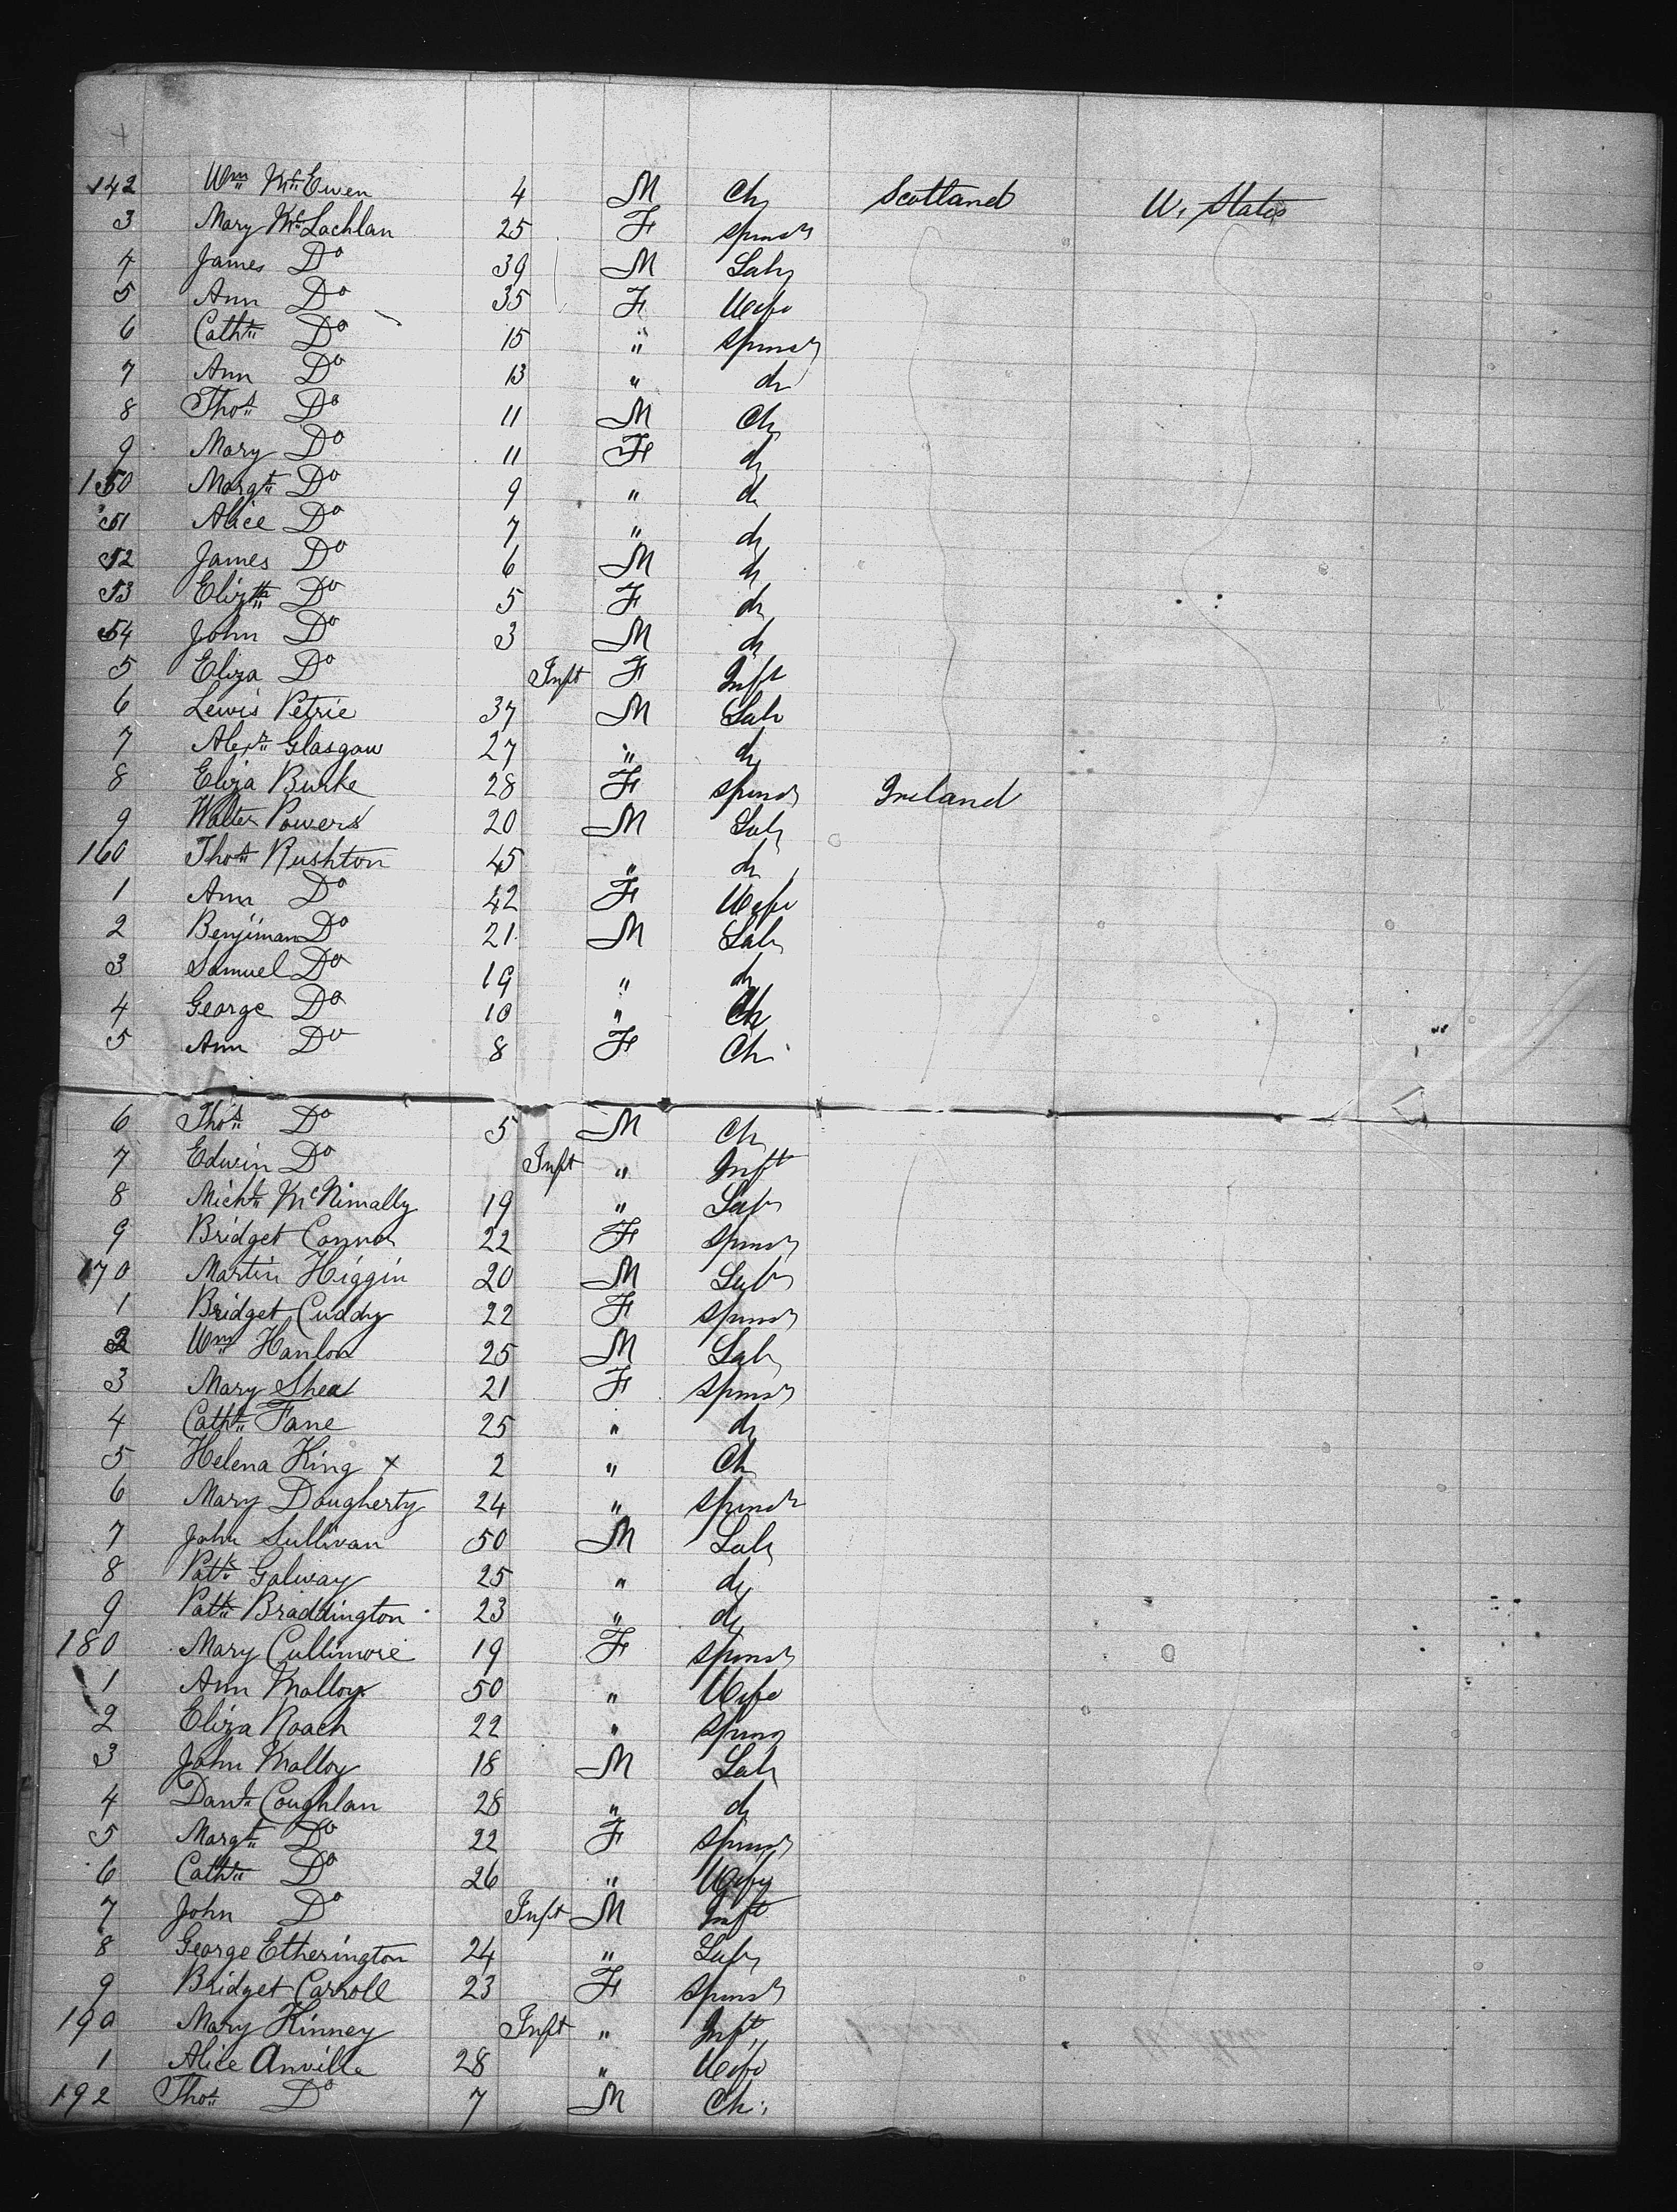 142 Wm McEwen 4 M Ch Scotland U. States
3 Mary McLachlan 25 F Spinsr
4 James Do 39 M Labr
5 Ann Do 35 F Wife
6 Cathn Do 15 " Spinsr
7 Ann Do 13 " do
8 Thos Do 11 M Ch
9 Mary Do 11 F do
150 Margt Do 9 " do
51 Alice Do 7 " do
52 James Do 6 M do
53 Elizth Do 5 F do
54 John Do 3 M do
5 Eliza Do Inft F Inft
6 Lewis Petrie 37 M Lab
7 Alexr Glasgow 27 " do
8 Eliza Burke 28 F Spinsr Ireland
9 Walter Powers 20 M Labr
160 Thos Rushton 45 " do
1 Ann Do 42 F Wife
2 Benjiman Do 21 M Labr
3 Samuel Do 19 " do
4 George Do 10 " Ch
5 Ann Do 8 F Ch
6 Thos Do 5 M Ch
7 Edwin Do Inft " Inft
8 Michl McNimally 19 " Labr
9 Bridget Connor 22 F Spinsr
170 Martin Higgin 20 M Labr
1 Bridget Cuddy 22 F Spinsr
2 Wm Hanlon 25 M Labr
3 Mary Shea 21 F Spinsr
4 Cathn Fane 25 " do
5 Helena King x 2 " Ch
6 Mary Dougherty 24 " Spinsr
7 John Sullivan 50 M Labr
8 Patk Galway 25 " do
9 Patk Braddington 23 " do
180 Mary Cullimore 19 F Spinsr
1 Ann Malloy 50 " Wife
2 Eliza Roach 22 " Spinsr
3 John Malloy 18 M Labr
4 Danl Coughlan 28 " do
5 Margt Do 22 F Spinsr
6 Cathn Do 26 " Wife
7 John Do Inft M Inft
8 George Etherington 24 " Labr
9 Bridget Carroll 23 F Spinsr
190 Mary Kinney Inft " Inft
1 Alice Anville 28 " Wife
192 Thos Do 7 M Ch